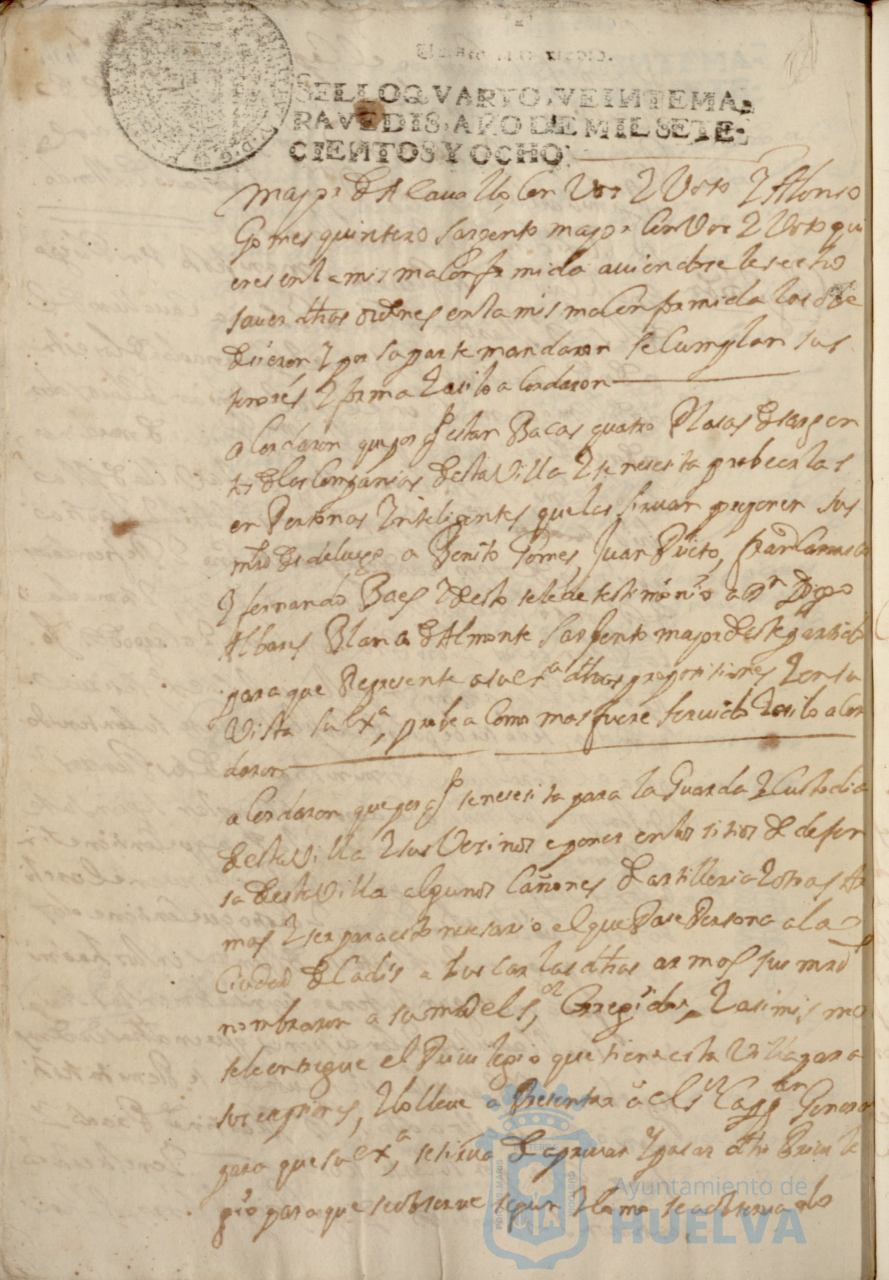 SELLO QVARTO, VEINTE MA-
RAVEDIS, AÑO DE MIL SETE-
CIENTOS Y OCHO.
major de A Cauallo, con Vos y Voto y Alonso
Gomes quintero sargento major con Vos y Voto qui
enes en la misma Conformida auiendose les echo
sauer dhas ordenes en la misma Conformida los
desieron y por su parte mandaron se Cumplan sus
tenores y forma y asilo acordaron
acordaron que por qto estan Bacas quatro Plasas de sargen
tos de las Companias desta Villa y se nesesita probeerlas
en Personas Inteligentes que las siruan proponen sus
mrds desde luego a Benito Gomes, Juan Prieto, Franco
y fernando Baes y desto se le de testimonio a Dn Diego
Albares de Almonte Sargento major deste partido
para que Represente a su exa dhas proposisiones y en su
Vista su exa, probea como mas fuere seruido y asilo acor
daron
acordaron que por qto se nesesita para la Guarda y Custodia
desta Villa y sus Vesinos e poner en los sitios de defen
sa desta Villa algunos Cañones de artilleria y otras Ar
mas y ser para esto nesesario el que Pase Persona a la
Ciudad de Cadis a buscar las dhas armas sus mrds
nombraron a su md el Sor Corregidor, y asimismo
se le entregue el Priuilegio que tiene esta Villa para
sus , y lo lleue a Presentar a el Sor Cappn General
para que su exa, se sirua de aprouar y pasar dho Priuile
gio para que se obserue segun y como se a obseruado
Ayuntamiento de
HUELVA